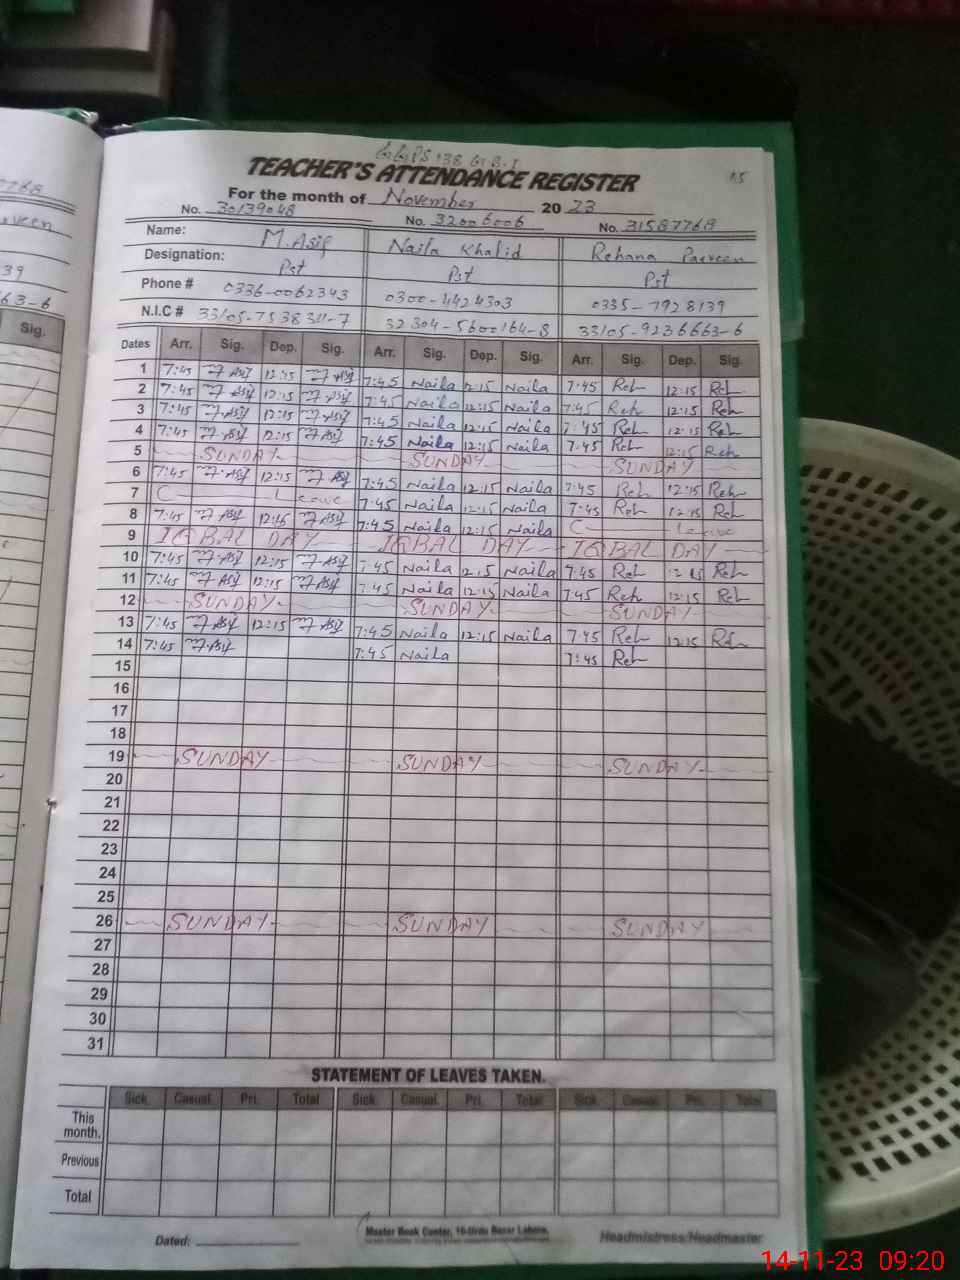 G.G.P.S 138 G.B.I
TEACHER'S ATTENDANCE REGISTER
15
For the month of November 2023
No. 30139048 No. 32006006 No. 31587768
Name: M.Asif Naila Khalid Rehana Parveen
Designation: Pst Pst Pst
Phone # 0336-0062343 0300-4424303 0335-7928139
N.I.C # 33105-7538311-7 32304-5600164-8 33105-9236663-6
Dates Arr. Sig. Dep. Sig. Arr. Sig. Dep. Sig. Arr. Sig. Dep. Sig.
1 7:45 M.Asif 12:15 M.Asif 7:45 Naila 12:15 Naila 7:45 Reh 12:15 Reh
2 7:45 M.Asif 12:15 M.Asif 7:45 Naila 12:15 Naila 7:45 Reh 12:15 Reh
3 7:45 M.Asif 12:15 M.Asif 7:45 Naila 12:15 Naila 7:45 Reh 12:15 Reh
4 7:45 M.Asif 12:15 M.Asif 7:45 Naila 12:15 Naila 7:45 Reh 12:15 Reh
5 SUNDAY SUNDAY SUNDAY
6 7:45 M.Asif 12:15 M.Asif 7:45 Naila 12:15 Naila 7:45 Reh 12:15 Reh
7 C Leave 7:45 Naila 12:15 Naila 7:45 Reh 12:15 Reh
8 7:45 M.Asif 12:15 M.Asif 7:45 Naila 12:15 Naila C Leave
9 IQBAL DAY IQBAL DAY IQBAL DAY
10 7:45 M.Asif 12:15 M.Asif 7:45 Naila 12:15 Naila 7:45 Reh 12:15 Reh
11 7:45 M.Asif 12:15 M.Asif 7:45 Naila 12:15 Naila 7:45 Reh 12:15 Reh
12 SUNDAY SUNDAY SUNDAY
13 7:45 M.Asif 12:15 M.Asif 7:45 Naila 12:15 Naila 7:45 Reh 12:15 Reh
14 7:45 M.Asif 7:45 Naila 7:45 Reh
15
16
17
18
19 SUNDAY SUNDAY SUNDAY
20
21
22
23
24
25
26 SUNDAY SUNDAY SUNDAY
27
28
29
30
31
STATEMENT OF LEAVES TAKEN.
Sick. Casual. Pri. Total Sick. Casual. Pri. Total Sick. Casual. Pri. Total
This month.
Previous
Total
Master Book Center, 16-Urdu Bazar Lahore.
Dated: Headmistress/Headmaster
14-11-23 09:20